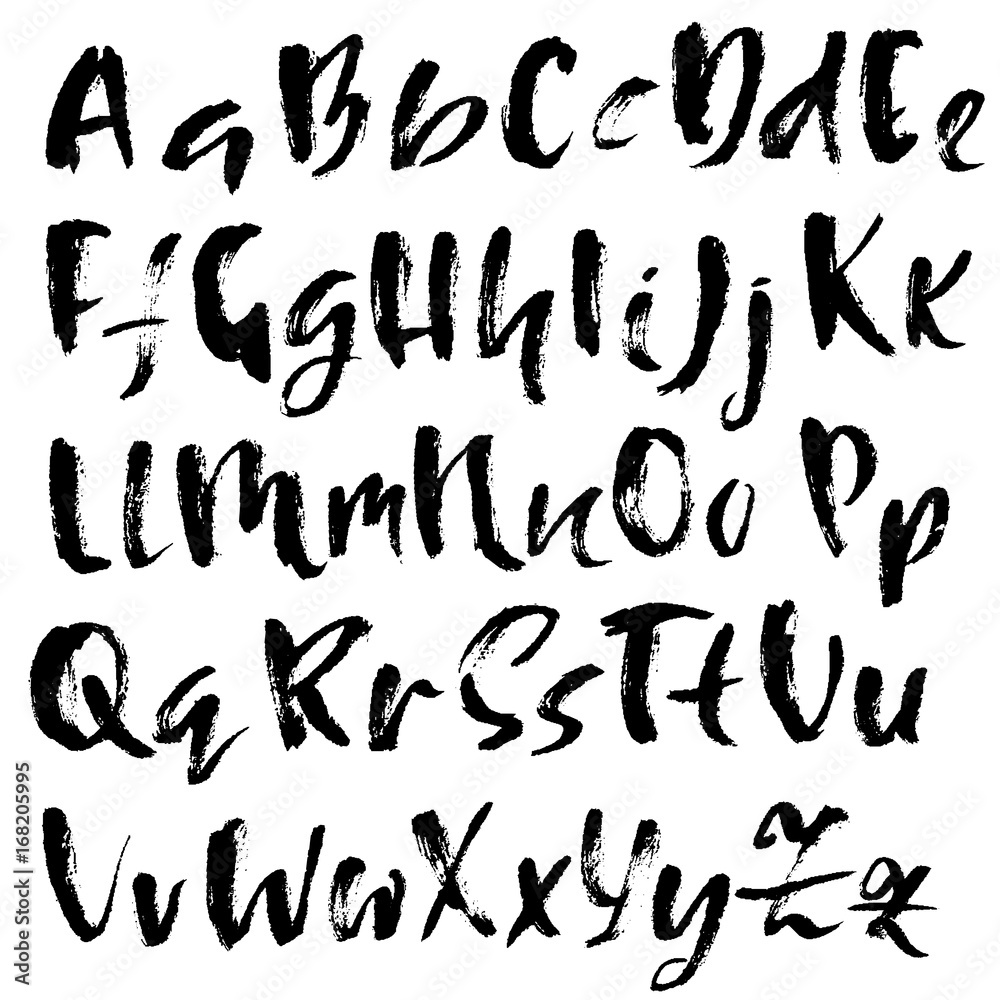 AaBbCcDdEe
FfGgHhIiJjKk
LlMmNnOoPp
QqRrSsTtUu
VvWwXxYyZz
Adobe Stock | #168205995